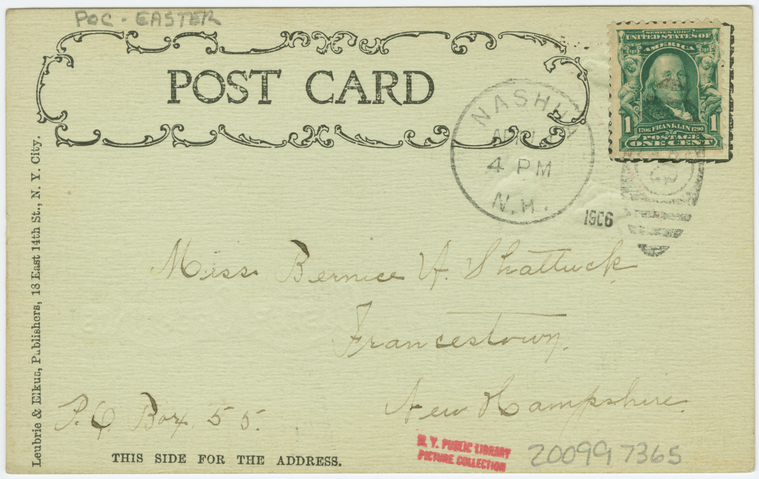 POC - EASTER
POST CARD
SERIES 1902
UNITED STATES OF
AMERICA
1 1706 FRANKLIN 1790 1
POSTAGE
ONE CENT
NASHU
4 PM
N.H.
1906
Miss Bernice A. Shattuck
Francestown,
New Hampshire.
P.O. Box 55.
THIS SIDE FOR THE ADDRESS.
Leubrie & Elkus, Publishers, 18 East 14th St., N. Y. City.
N. Y. PUBLIC LIBRARY
PICTURE COLLECTION
200997365